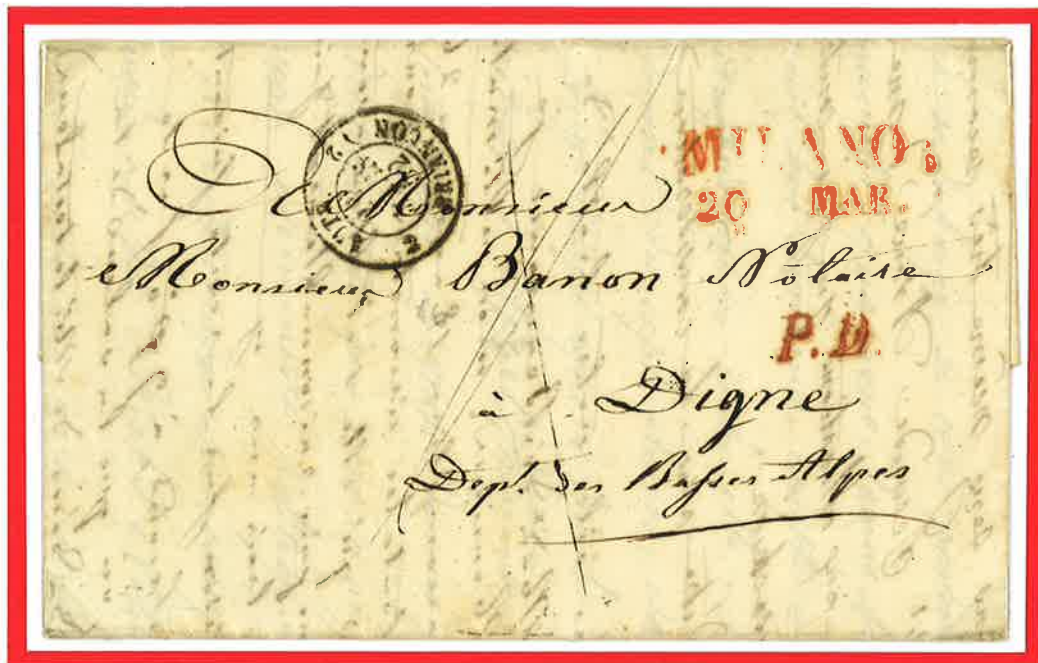 MILANO
20 MAR.
BRIANÇON
A Monsieur
Monsieur Banon Notaire
P.D.
à Digne
Dept. des Basses Alpes